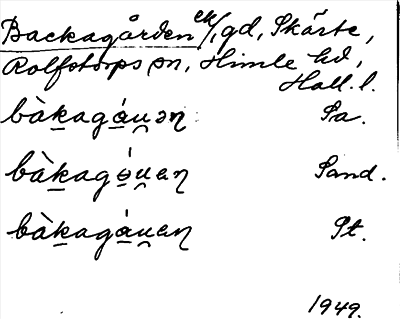 Backagården ek/, gd, Skärte,
Rolfstorps sn, Himle hd,
Hall. l.
bàkagáu̯ən Sa.
bàkagǿu̯an Sand.
bàkagáu̯an St.
1949.